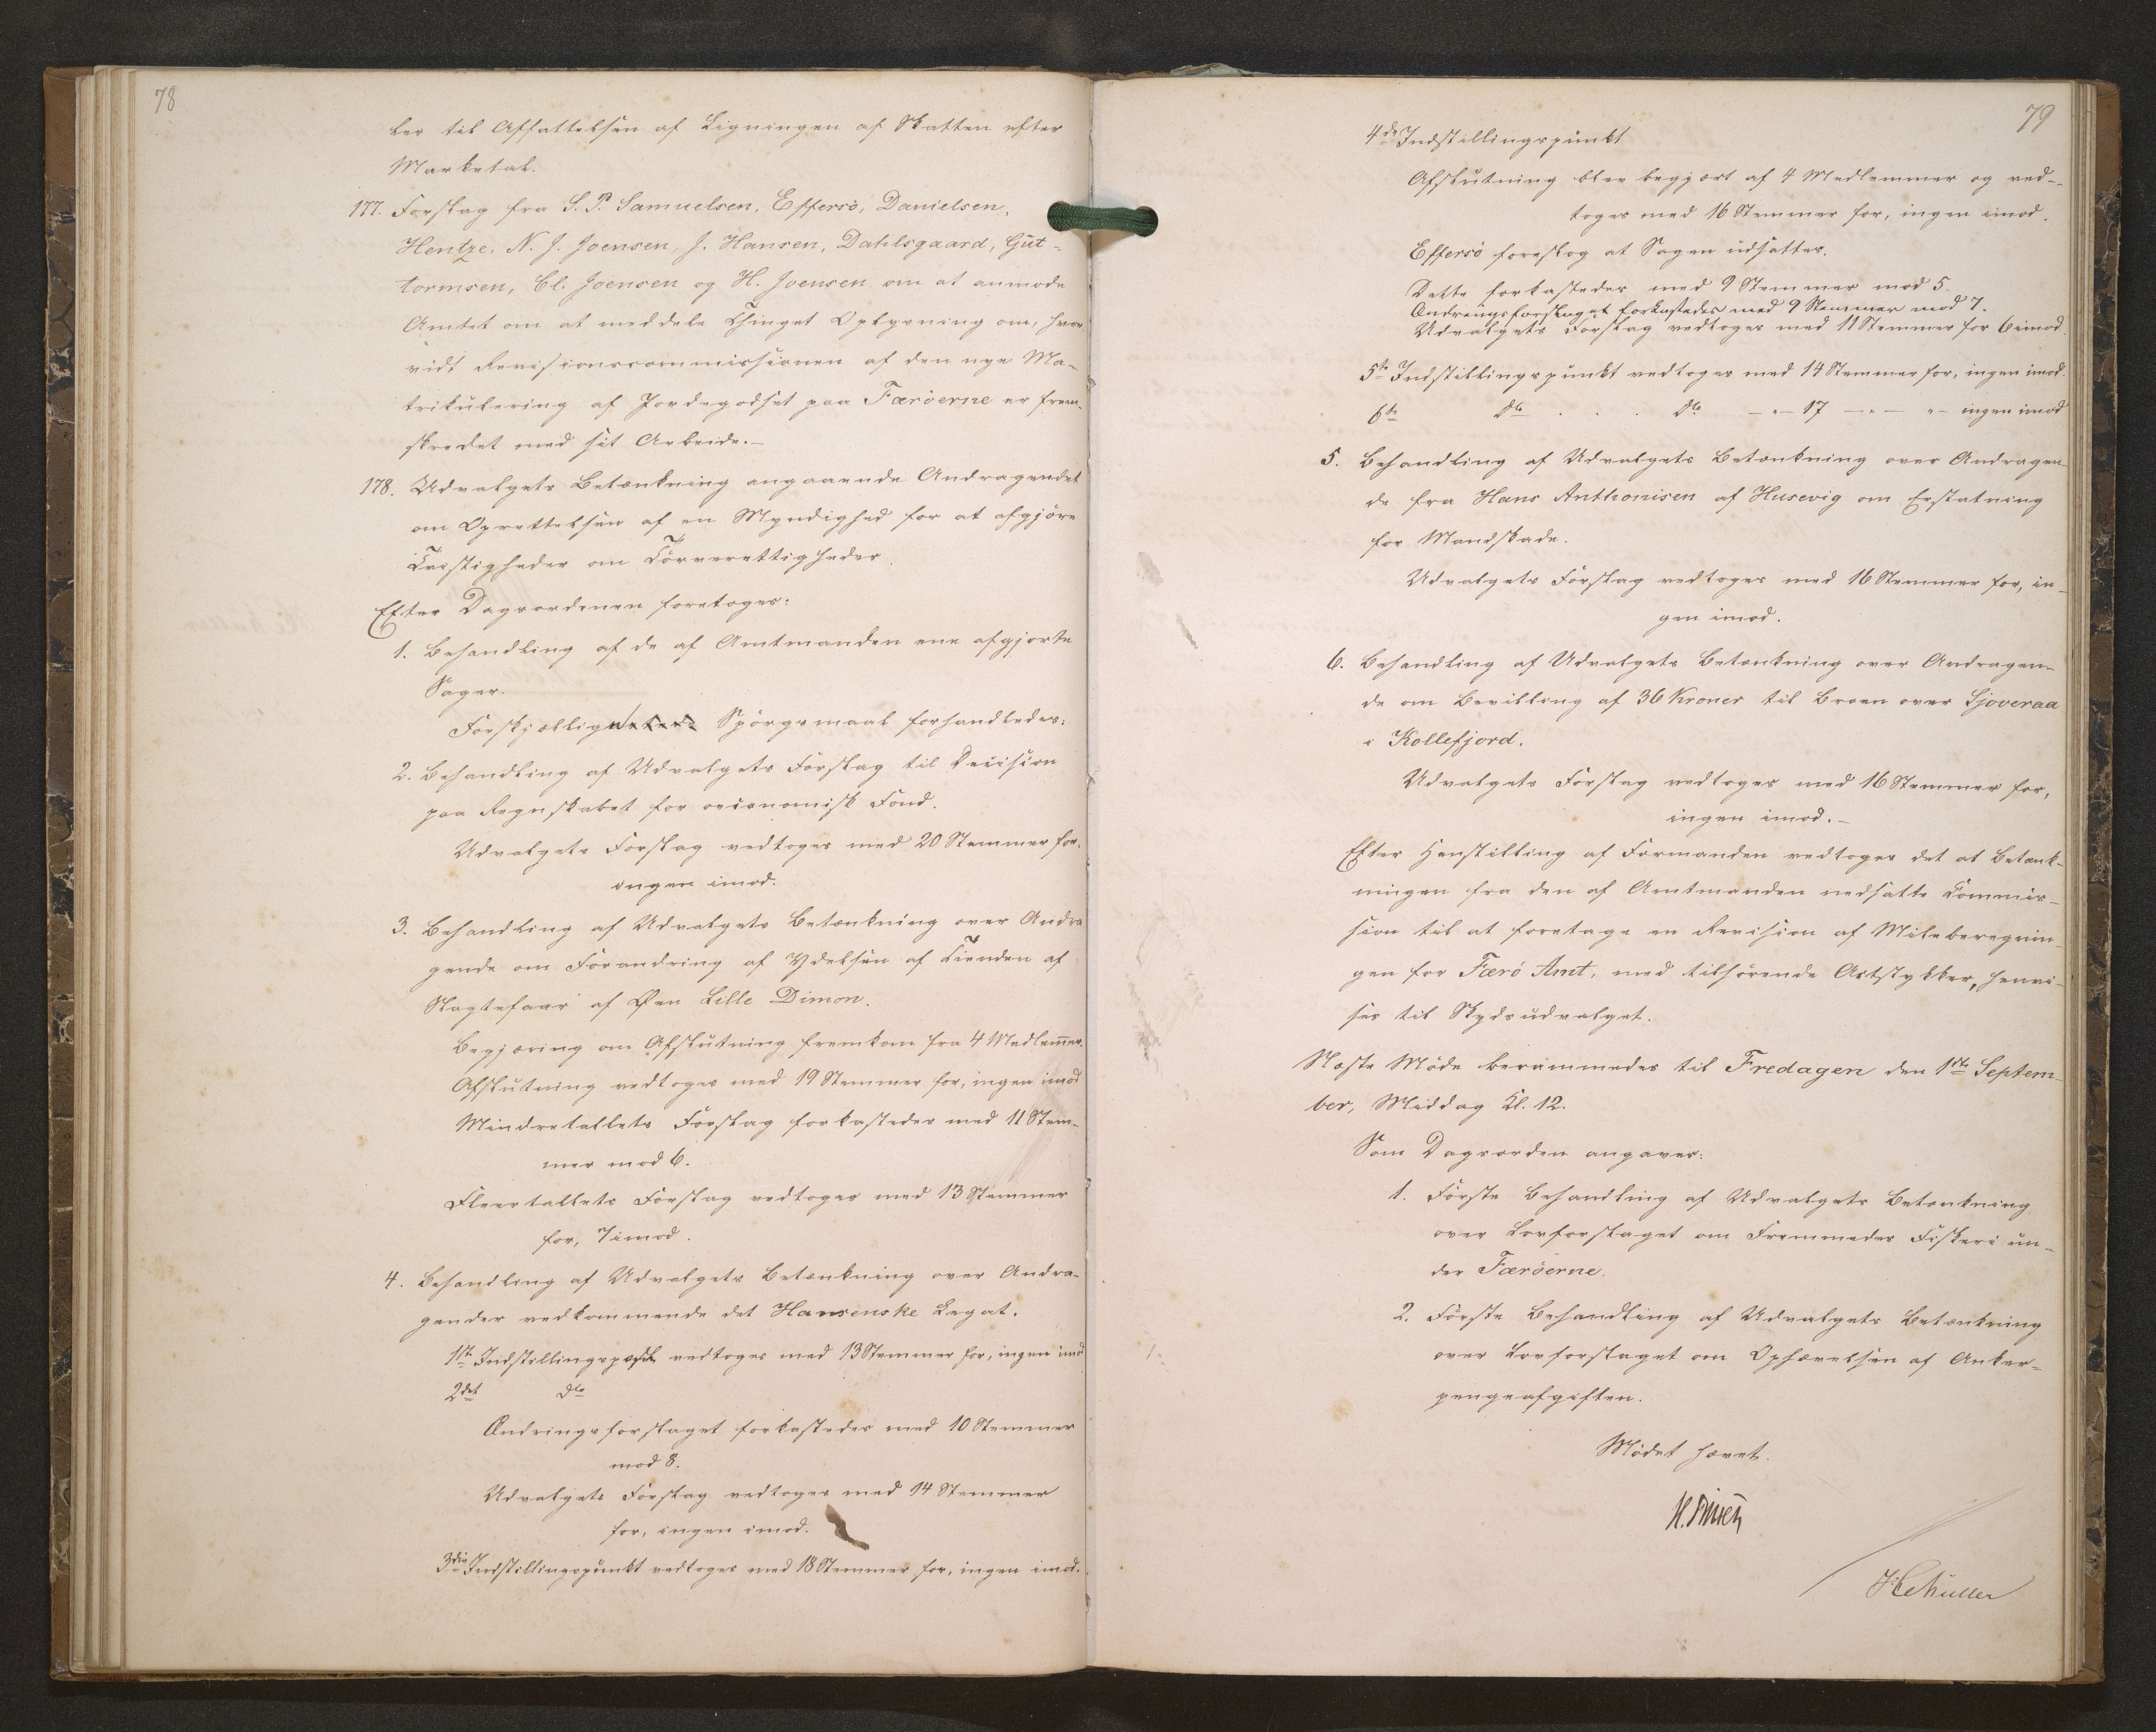 78
ler til Affattelsen af Ligningen af Skatten efter
Marketal.
177. Forslag fra S. P. Samuelsen, Effersö, Danielsen,
Hentze, N. J. Joensen, J. Hansen, Dahlsgaard, Gut-
tormsen, Cl. Joensen og H. Joensen om at anmode
Amtet om at meddele Thinget Oplysning om, hvor
vidt Revisionscommissionen af den nye Ma-
trikulering af Jordegodset paa Færöerne er frem-
skredet med sit Arbeide.—
178. Udvalgets Betænkning angaaende Andragendet
om Oprettelsen af en Myndighed for at afgjöre
Tvistigheder om Törverettigheder.
Efter Dagsordenen foretoges:
1. Behandling af de af Amtmanden ene afgjorte
Sager.
Forskjellig Spörgsmaal forhandledes:
2. Behandling af Udvalgets Forslag til Decision
paa Regnskabet for oeconomisk Fond.
Udvalgets Forslag vedtoges med 20 Stemmer for,
ingen imod.
3. Behandling af Udvalgets Betænkning over Andra
gende om Forandring af Ydelsen af Tienden af
Slagtefaar af Øen Lille Dimon.
Begjæring om Afslutning fremkom fra 4 Medlem̄er.
Afslutning vedtoges med 19 Stemmer for, ingen imod
Mindretallets Forslag forkastedes med 11 Stem-
mer mod 6.
Fleertallets Forslag vedtoges med 13 Stemmer
for, 7 imod.
4. Behandling af Udvalgets Betænkning over Andra-
gender vedkommende det Hansenske Legat.
1ste Indstillingspost vedtoges med 13 Stemmer for, ingen imod
2det do
Ændringsforslaget forkastedes med 10 Stemmer
mod 8.
Udvalgets Forslag vedtoges med 14 Stemmer
for, ingen imod.
3die Indstillingspunkt vedtoges med 18 Stemmer for, ingen imod.
79
4de Indstillingspunkt
Afslutning blev begjært af 4 Medlemmer og ved-
toges med 16 Stemmer for, ingen imod.
Effersö foreslog at Sagen udsattes.
Dette forkastedes med 9 Stemmer mod 5.
Ændringsforslaget forkastedes med 9 Stemmer mod 7.
Udvalgets Forslag vedtoges med 11 Stemmer for 6 imod
5te Indstillingspunkt vedtoges med 14 Stemmer for, ingen imod.
6te do . . . do —"— 17 —"— "— ingen imod
5. Behandling af Udvalgets Betænkning over Andragen-
de fra Hans Anthonisen af Husevig om Erstatning
for Mandskade.
Udvalgets Forslag vedtoges med 16 Stemmer for, in-
gen imod.
6. Behandling af Udvalgets Betænkning over Andragen-
de om Bevilling af 36 Kroner til Broen over Sjoveraa
i Kollefjord.
Udvalgets Forslag vedtoges med 16 Stemmer for,
ingen imod.—
Efter Henstilling af Formanden vedtoges det at Betænk-
ningen fra den af Amtmanden nedsatte Commis-
sion til at foretage en Revision af Mileberegnin-
gen for Færö Amt, med tilhørende Actstykker, henvi-
ses til Skydsudvalget.
Næste Möde berammedes til Fredagen den 1ste Septem-
ber, Middag Kl. 12.
Som Dagsorden angaves:
1. Förste Behandling af Udvalgets Betænkning
over Lovforslaget om Fremmedes Fiskeri un-
der Færöerne.
2. Förste Behandling af Udvalgets Betænkning
over Lovforslaget om Ophævelsen af Anker-
pengeafgiften.
Mödet hævet.
H. Finsen
HC Müller